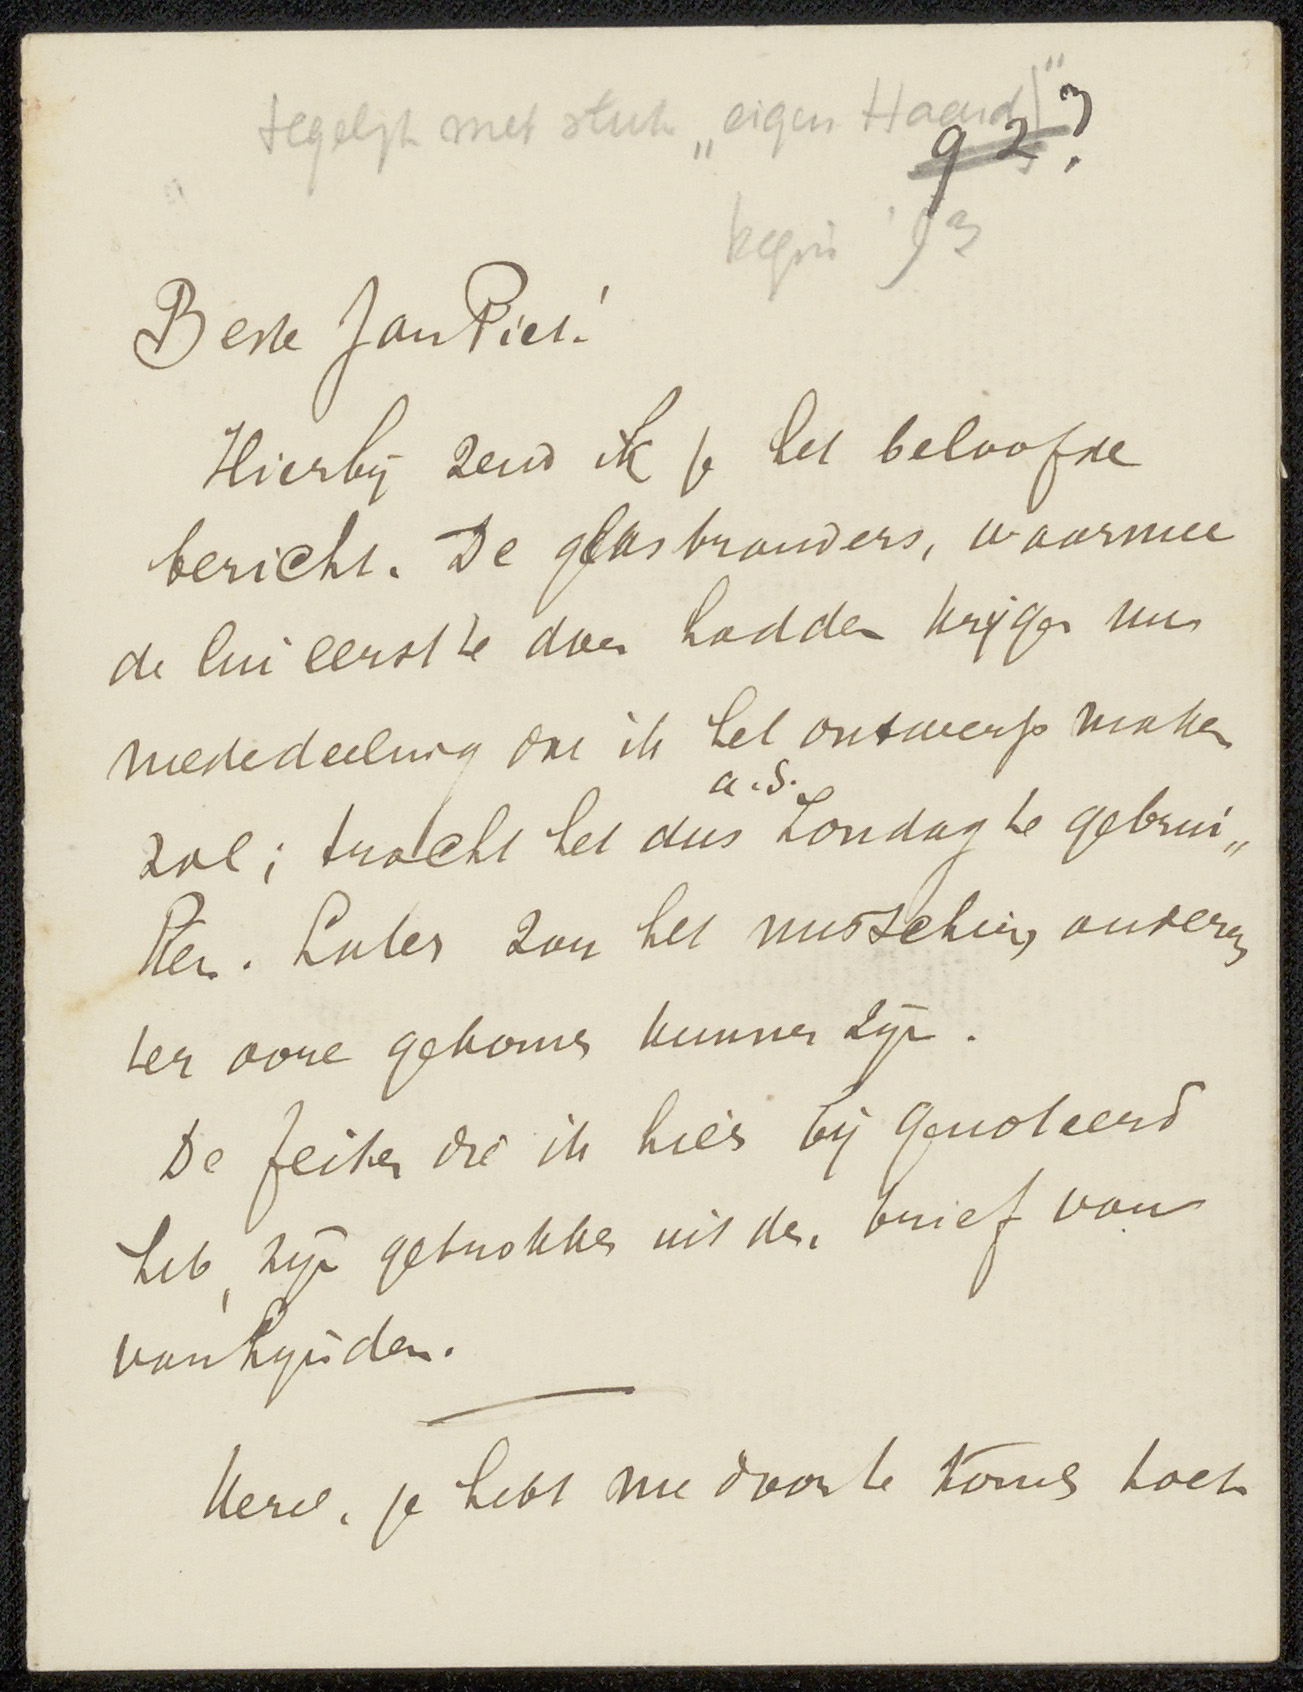 tegelijk met stuk „eigen Haard"
92?
begin '93
Beste Jan Piet!
Hierbij zend ik je het beloofde
bericht. De glasbranders, waarmee
de lui eerst te doen hadden krijgen nu
mededeeling dat ik het ontwerp maken
a.s.
zal; tracht het dus Zondag te gebrui„
ken. Later zou het misschien anderen
ter oore gekomen kunnen zijn.
De feiten die ik hier bij genoteerd
heb, zijn getrokken uit den brief van
van
Kerel, je hebt me door te komen toch